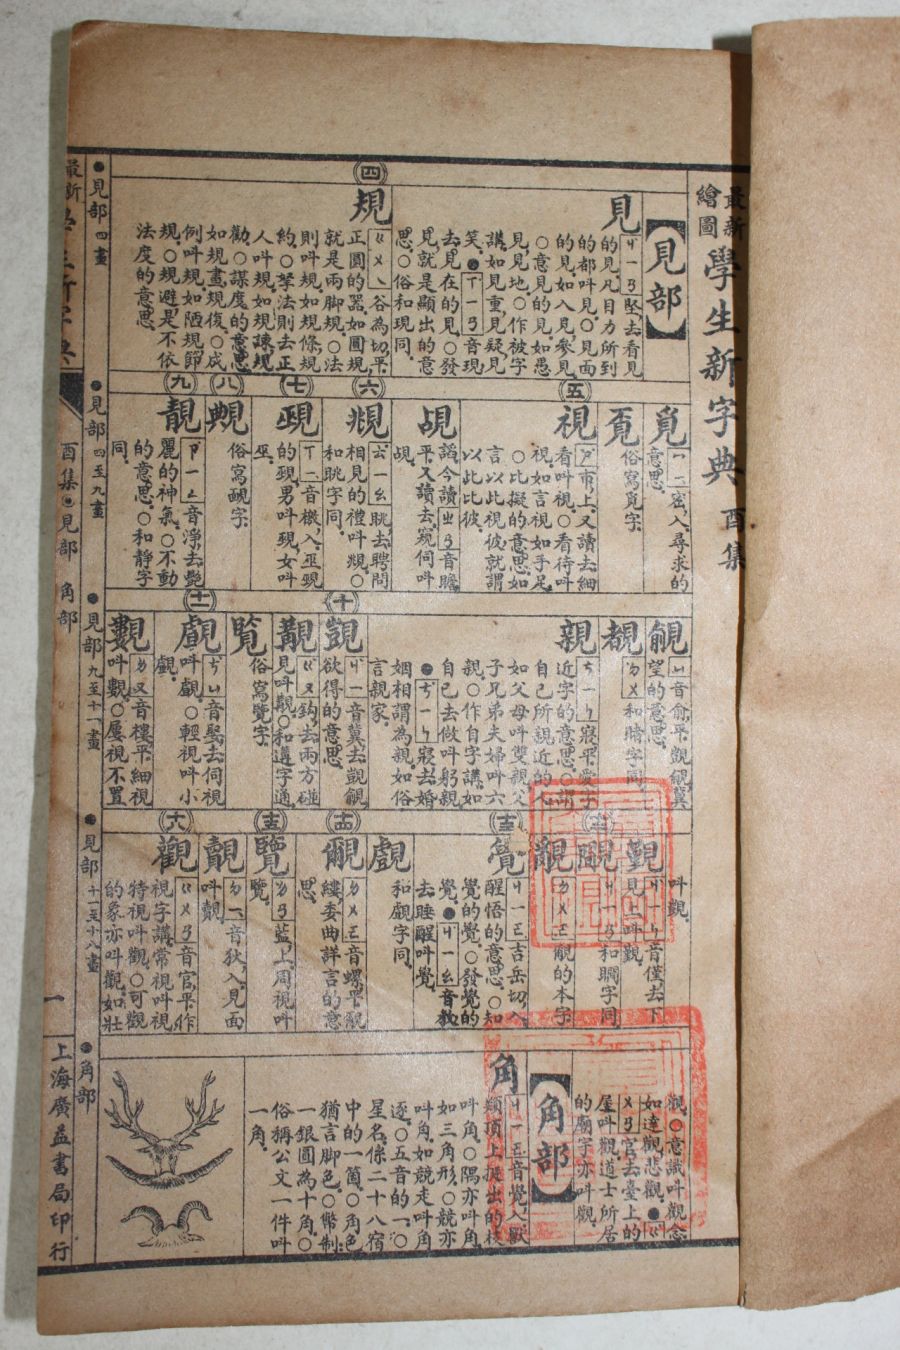 最新繪圖學生新字典 酉集
【見部】
見
ㄐㄧㄢ堅去看見
的見凡目力所到
的都叫見○見面
的見如入見參見
○意見的見如愚
見見地○作被字
講如見重見疑見
笑●ㄒㄧㄢ音現
去見在的見○發
見就是顯出的意
思○俗和現同
四
規
ㄍㄨㄟ谷為切平
正圓的器如圓規
就是兩脚規○法
則叫規如規條規
約○拏法則去正
人叫規如規諫規
勸○謀度的意思
如規畫規復○成
例叫規如陋規節
規○規避是不依
法度的意思
覓
ㄇㄧ密入尋求的
意思
覔
俗寫覓字
五
視
ㄕ市上又讀去細
看叫視○看待叫
視如言視如手足
○比擬的意思如
言以此視彼就謂
以此比彼
覘
謟今讀ㄓㄢ音瞻
平又讀去窺伺叫
覘
六
覜
ㄊㄧㄠ眺去聘問
相見的禮叫覜○
和眺字同
七
覡
ㄒㄧ音檄入巫覡
的覡男叫覡女叫
巫
八
覥
俗寫靦字
九
靚
ㄗㄧㄥ音淨去艷
麗的神氣○不動
的意思○和靜字
同
覦
ㄩ音俞平覬覦冀
望的意思
覩
ㄉㄨ和睹字同
親
ㄑㄧㄣ寢平愛字
近字的意思○謂
自己所親近的人
如父母叫雙親父
子兄弟夫婦叫六
親○作自字講如
自己去做叫躬親
●ㄑㄧㄣ寢去婚
姻相謂為親如俗
言親家
十
覬
ㄐㄧ音冀去覬覦
欲得的意思
覯
ㄍㄡ鈎去兩方碰
見叫覯○和遘字通
覧
俗寫覽字
十一
覰
ㄑㄩ音娶去伺視
叫覰○輕視叫小
覰
䙫
ㄌㄡ音樓平細視
叫䙫○屢視不置
叫覯
覲
ㄐㄧㄣ音僅去下
見上叫覲
覵
覩的本字
十三
覺
ㄐㄧㄝ吉岳切入
醒悟的意思○知
覺的覺○發覺的
覺●ㄐㄧㄠ音教
去睡醒叫覺
覷
和覰字同
十四
覶
ㄌㄨㄛ音螺平覶
縷委曲詳言的意
思
十五
覽
ㄌㄢ藍上周視叫
覽
覿
ㄉㄧ音狄入見面
叫覿
十八
觀
ㄍㄨㄢ音官平作
視字講常視叫視
特視叫觀○可觀
的象亦叫觀如壯
觀○意識叫觀念
如達觀悲觀●ㄍ
ㄨㄢ官去臺上的
屋叫觀道士所居
的廟宇亦叫觀
【角部】
角
音覺入獸
類頂上挺出的枝
叫角○隅亦叫角
如三角形○競亦
叫角如競走叫角
逐○五音的一○
星名係二十八宿
中的一箇○角色
猶言脚色○幣制
一銀圓為十角○
俗稱公文一件叫
一角
●見部四畫
●見部 四至九畫
●見部 九至十一畫
●見部 十一至十八畫
●角部
酉集●見部 角部
一
上海廣益書局印行